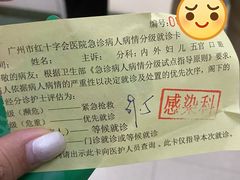 广州市红十字会医院急诊病人病情分级就诊卡
编号:0
分科:内 外 妇 儿 五官 口
敬的病友:根据卫生部《急诊病人病情分级试点指导原则》要求
人依据病人病情的严重性以决定就诊及处置的优先次序,阁下的
经分诊护士评估为:
级(濒危)
紧急抢救
级(危重)
优先就诊
等候就诊
门诊就诊或等候就诊
请出示此卡向医护人员查询。此卡仅指导本次就诊。
感染科